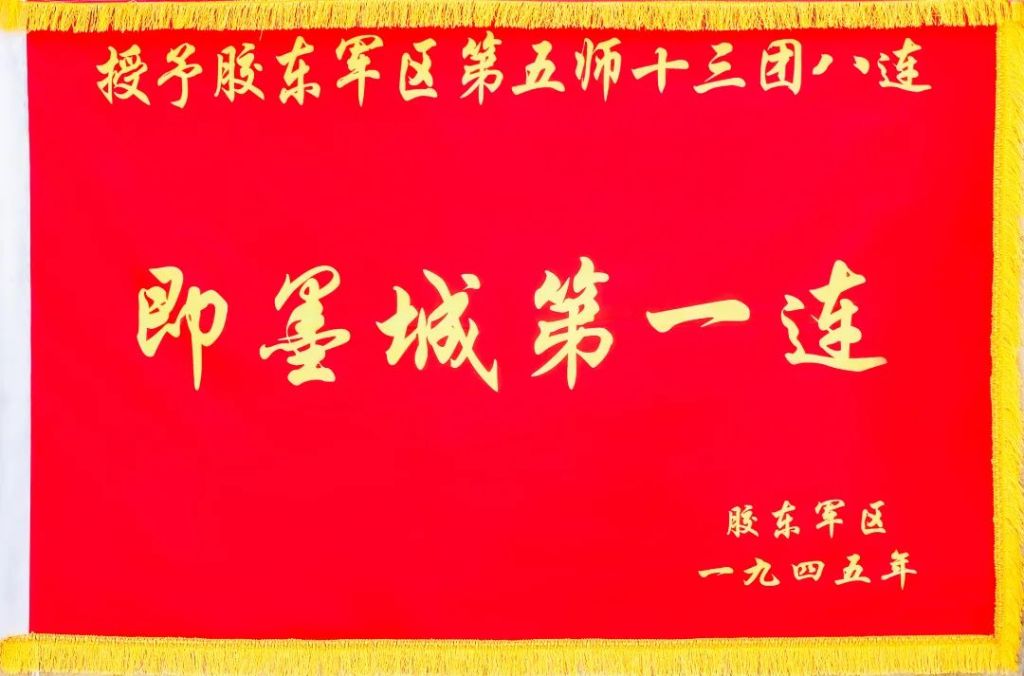 授予胶东军区第五师十三团八连
即墨城第一连
胶东军区
一九四五年